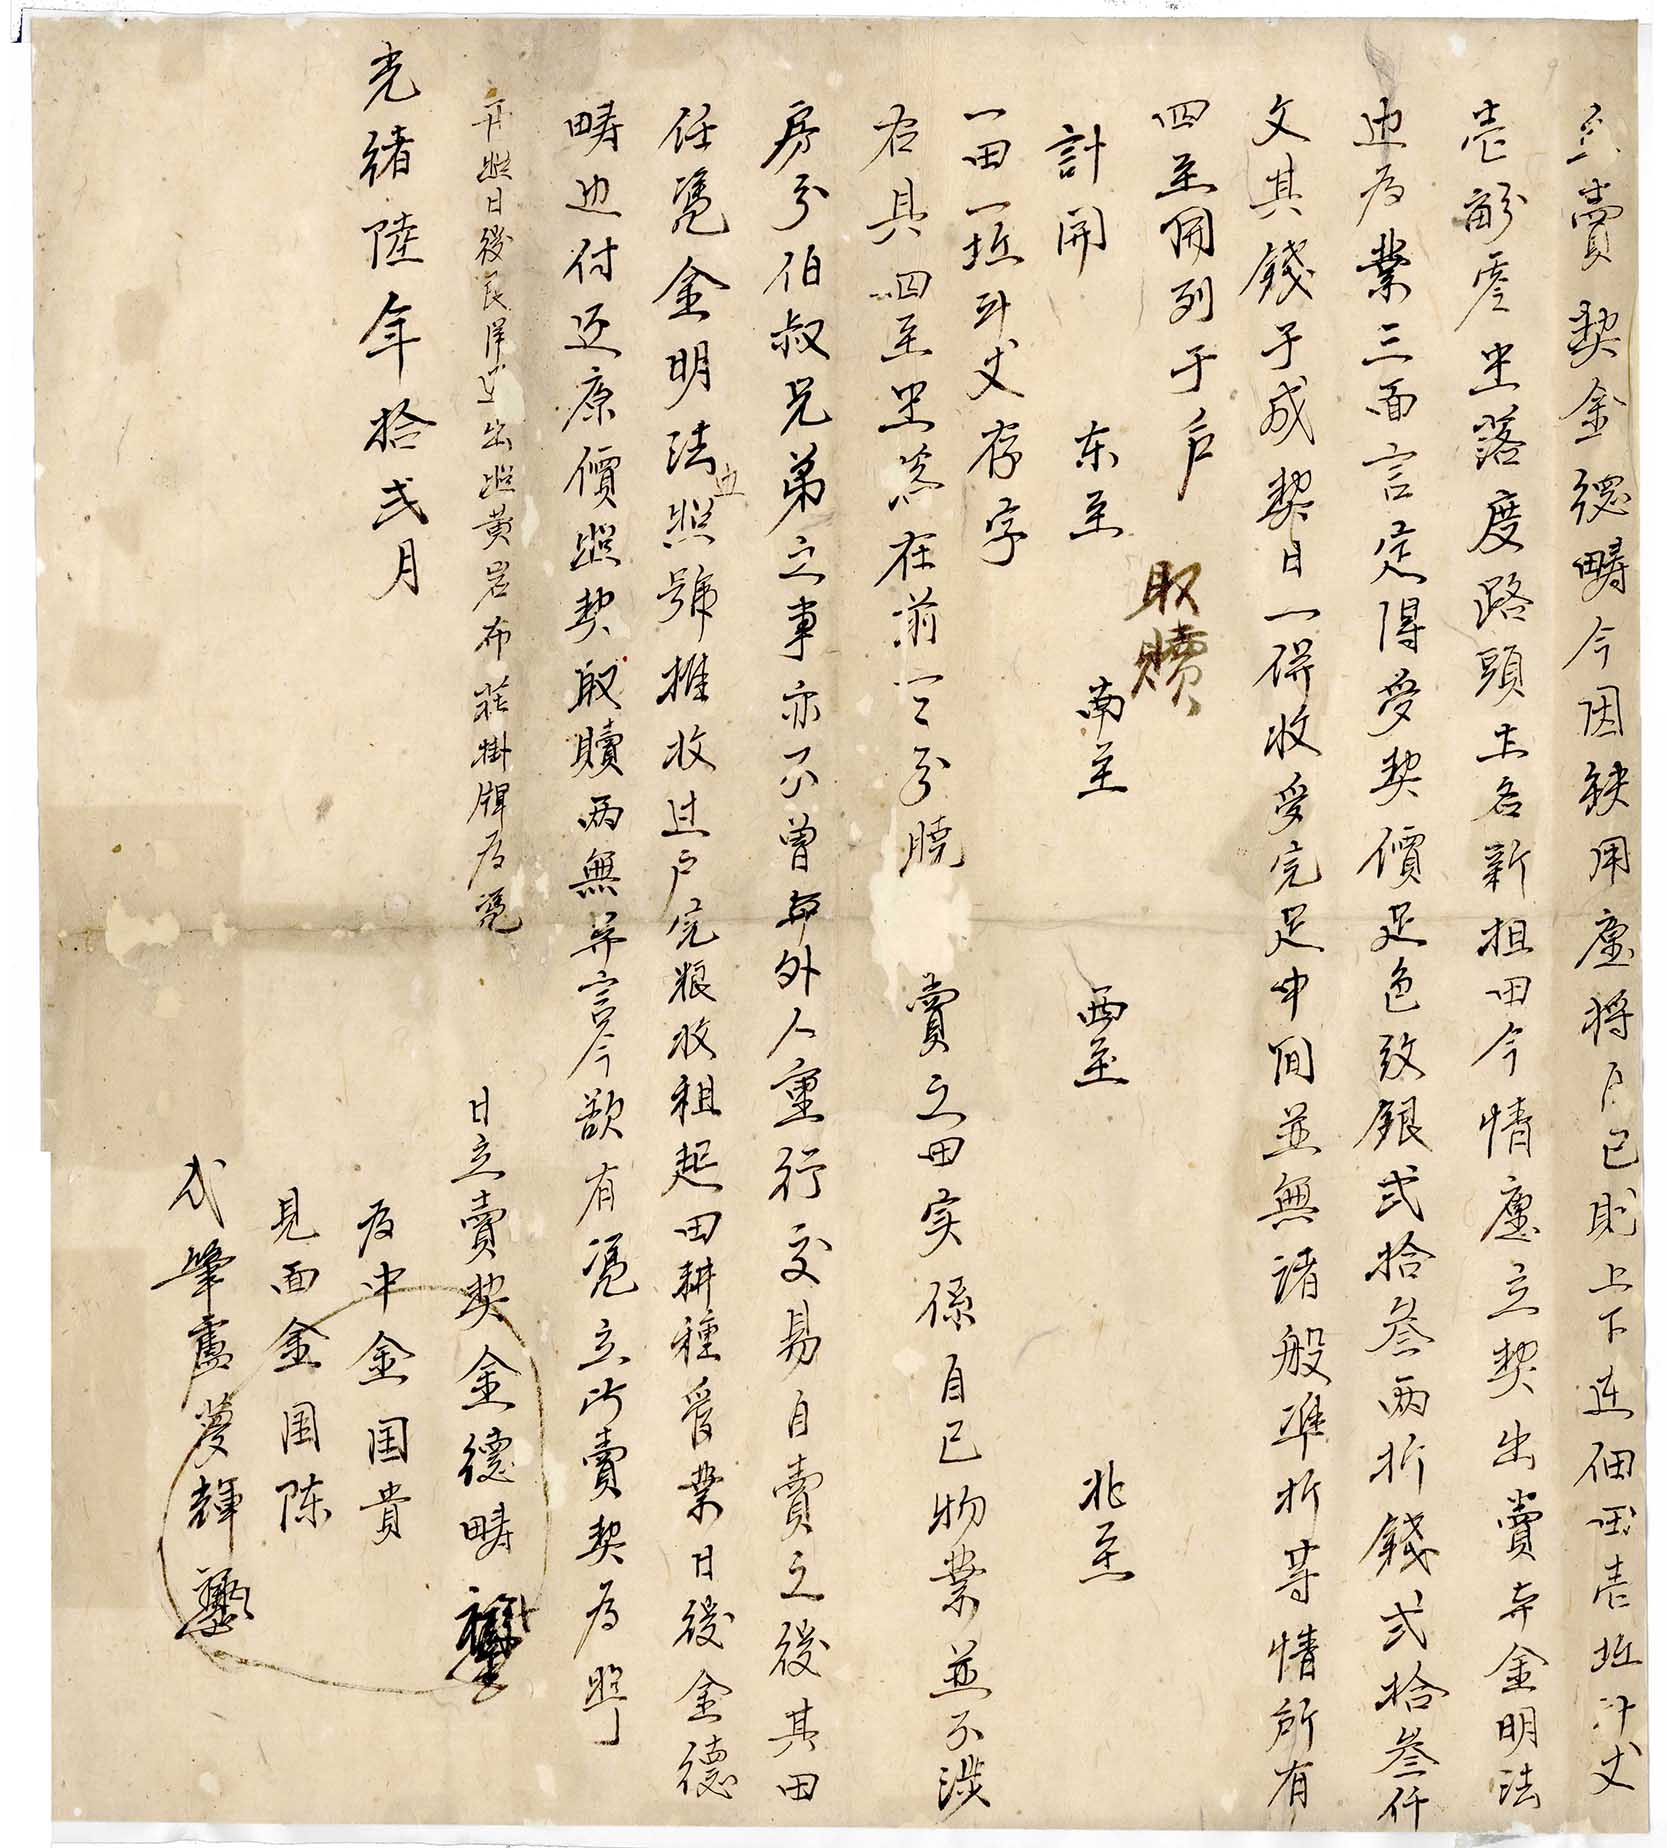 立賣契金德疇今因缺用應將戶己則上下連佃田壹坵計丈
壹畝零坐落度路頭土名新担田今情應立契出賣弃金明法
边为業三面言定得受契價足色纹銀弍拾叁两折錢弍拾叁仟
文其錢予成契日一併收受完足中间並無諸般準折等情所有
四至開列于后
取贖
計開 东至 南至 西至 北至
一田一坵計丈存字
右具四至坐落在前一一分曉 賣之田实係自己物業並不涉
房分伯叔兄弟之事亦不曾與外人重行交易自賣之後其田
任凭金明法边照號推收过戶完粮收租起田耕種管業日後金德
疇边付还原價照契取贖两無异言今欲有凭立此賣契为照
再照日後良洋 出照黃岩布莊掛牌为凭
光緒陸年拾弍月 日立賣契金德疇
为中金国貴
見面金国陈
代筆蘆夢輝